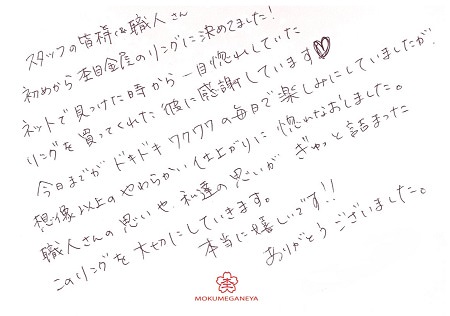 スタッフの皆様&職人さん
初めから杢目金屋のリングに決めてました!
ネットで見つけた時から一目惚れしていた
リングを買ってくれた彼に感謝しています♡
今日までがドキドキワクワクの毎日で楽しみにしていましたが、
想像以上のやわらかい仕上がりに惚れなおしました。
職人さんの思いや、私達の思いが ぎゅっと詰まった
このリングを大切にしていきます。
本当に嬉しいです!!
ありがとうございました。
MOKUMEGANEYA